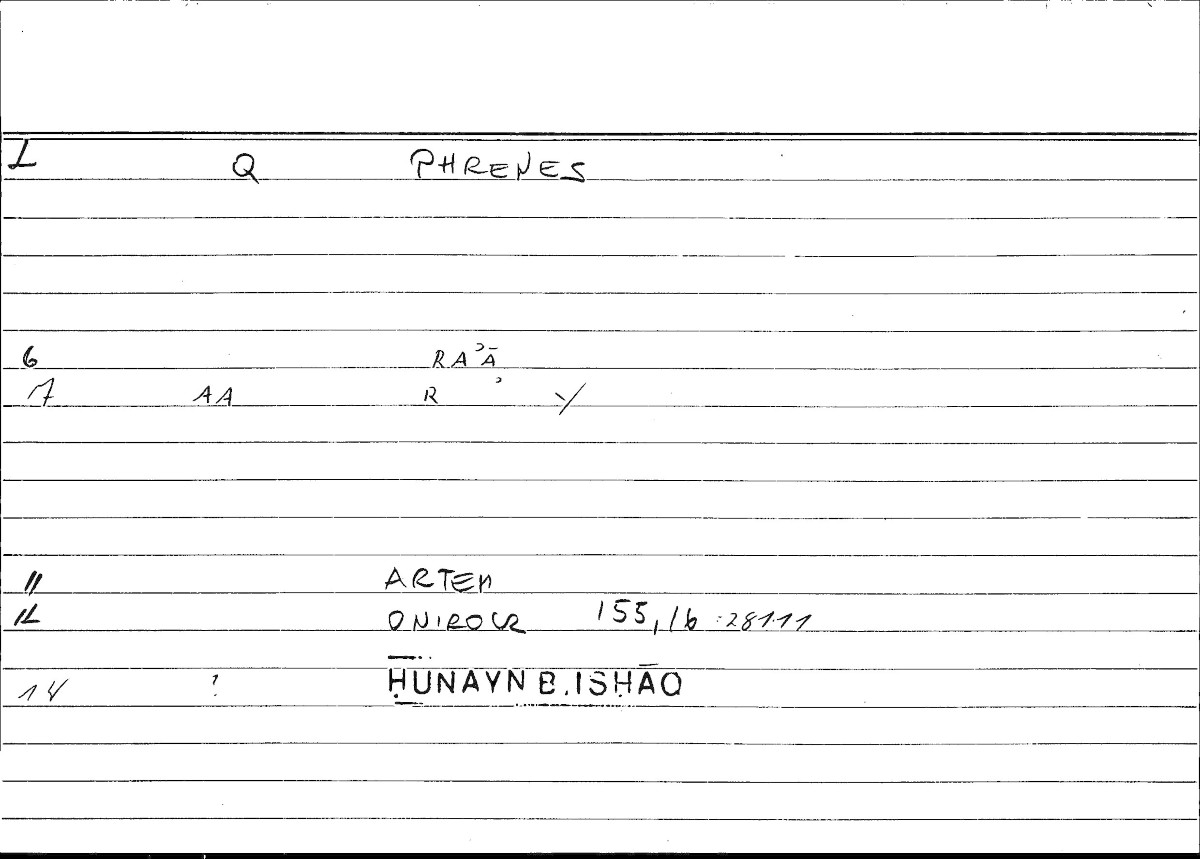 1 Q PHRENES
6 RAʾĀ
7 AA R ʾ Y
11 ARTEM
12 ONIROCR 155,16 :281.11
14 ? ḤUNAYN B. ISḤĀQ